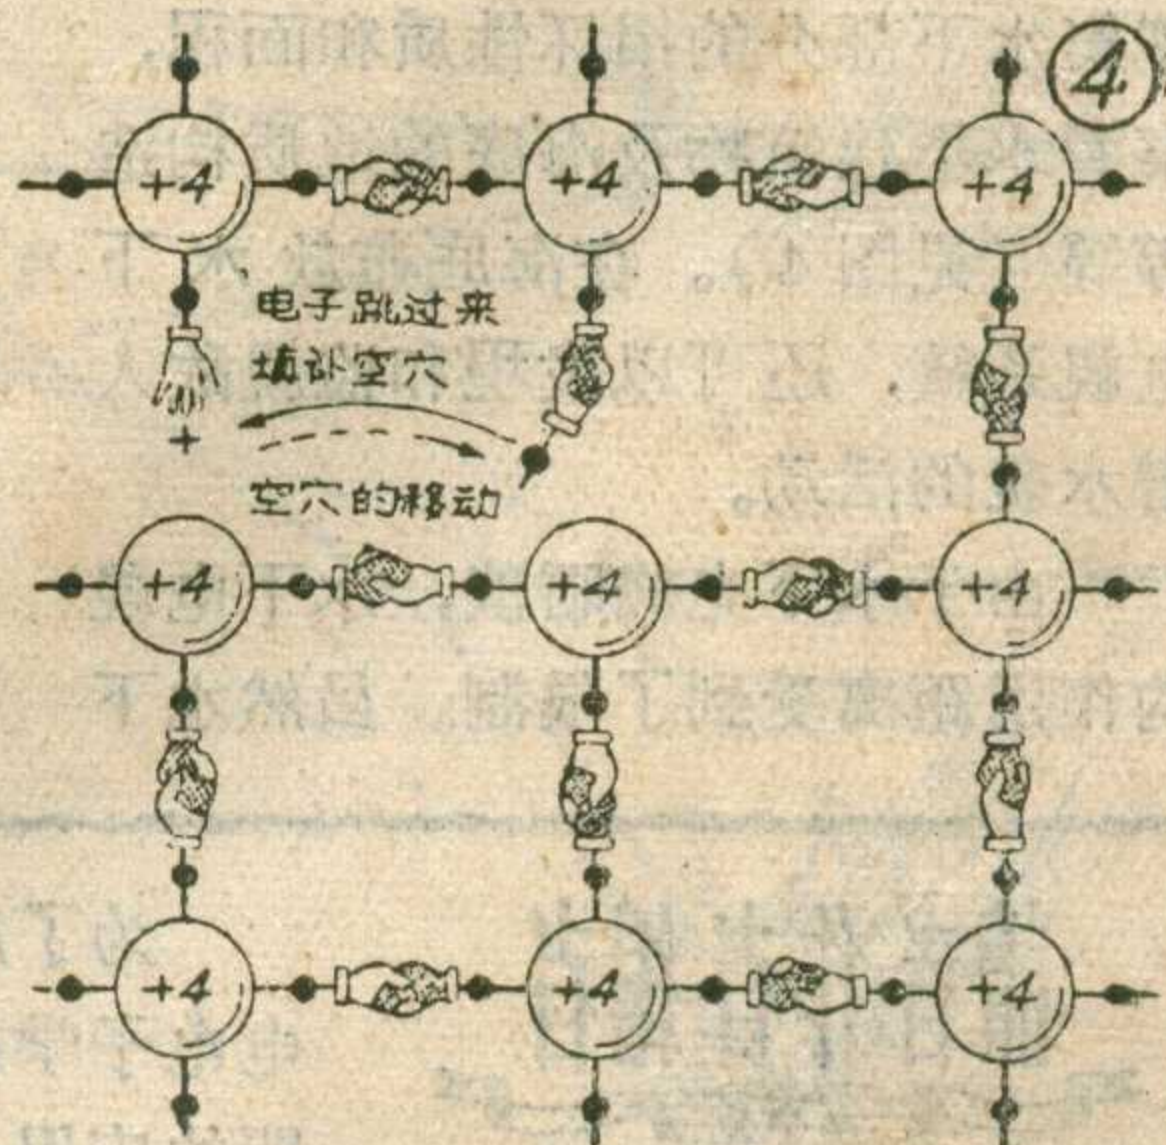 ④
+4 +4 +4
电子跳过来
填补空穴
+
空穴的移动
+4 +4 +4
+4 +4 +4